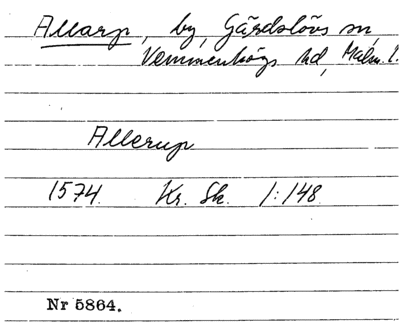 Allarp, by, Gärdslövs sn,
Vemmenhögs hd, Malm. l.
Allerup
1574. Kr. Sk. 1:148
Nr 5864.